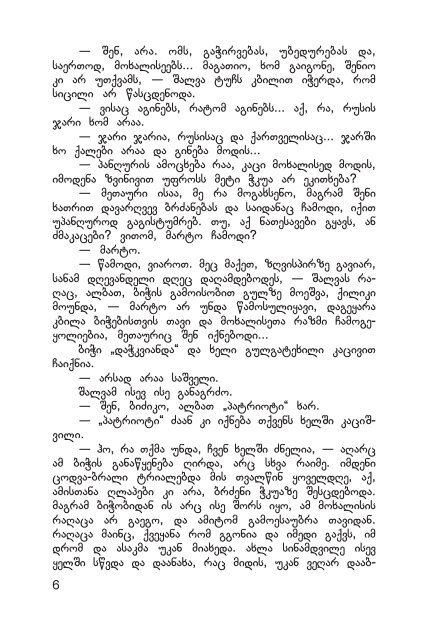 — შენ, არა. ომს, გაჭირვებას, უბედურებას და,
საერთოდ, მოხალისეებს... მაგათიო, ხომ გაიგონე, შენიო
კი არ უთქვამს, — შალვა ტუჩს კბილით იჭერდა, რომ
სიცილი არ წასცდენოდა.
— ვისაც აგინებს, რატომ აგინებს... აქ, რა, რუსის
ჯარი ხომ არაა.
— ჯარი ჯარია, რუსისაც და ქართველისაც... ჯარში
ხო ქალები არაა და გინება მოდის...
— პანღურის ამოცხება რაა, კაცი მოხალისედ მოდის,
იმოდენა ზვინივით უფროსს მეტი ჭკუა არ ეკითხება?
— მეთაური ისაა, მე რა მოგახსენო, მაგრამ შენი
ხათრით დავარღვევ ბრძანებას და საიდანაც ჩამოდი, იქით
უპანღუროდ გაგისტუმრებ. თუ, აქ ნათესავები გყავს, ან
ძმაკაცები? ვითომ, მარტო ჩამოდი?
— მარტო.
— წამოდი, ვიაროთ. მეც მაქეთ, ზღვისპირზე გავიარ,
სანამ დღევანდელი დღეც დაღამდებოდეს, — შალვას რა-
ღაც, ალბათ, ბიჭის გამოისობით გულზე მოეშვა, ქილიკი
მოუნდა, — მარტო არ უნდა წამოსულიყავი, დაგეყარა
კბილა ბიჭებისთვის თავი და მოხალისეთა რაზმი ჩამოგე-
ყოლიებია, მეთაურიც შენ იქნებოდი...
ბიჭი „დაჭკვიანდა“ და ხელი გულგატეხილი კაცივით
ჩაიქნია.
— არსად არაა საშველი.
შალვამ ისევ ისე განაგრძო.
— შენ, ბიძიკო, ალბათ „პატრიოტი“ ხარ.
— „პატრიოტი“ ძაან კი იქნება თქვენს ხელში კაციშ-
ვილი.
— ჰო, რა თქმა უნდა, ჩვენ ხელში ძნელია, — აღარც
ამ ბიჭის განაწყენება ღირდა, არც სხვა რაიმე. იმდენი
ცოდვა-ბრალი ტრიალებდა მის თვალწინ ყოველდღე, აქ,
ამისთანა ღლაპები კი არა, ბრძენი ჭკუაზე შესცდებოდა.
მაგრამ ბიჭობიდან ის არც ისე შორს იყო, ამ მოხალისის
რაღაცა არ გაეგო, და ამიტომ გამოესაუბრა თავიდან.
რაღაცა მაინც, ქვეყანა რომ გგონია და იმედი გაქვს, იმ
დრომ და ასაკმა უკან მიახედა. ახლა სინამდვილე ისევ
ყელში სწვდა და დაანახა, რაც მიდის, უკან ველარ დააბ-
6